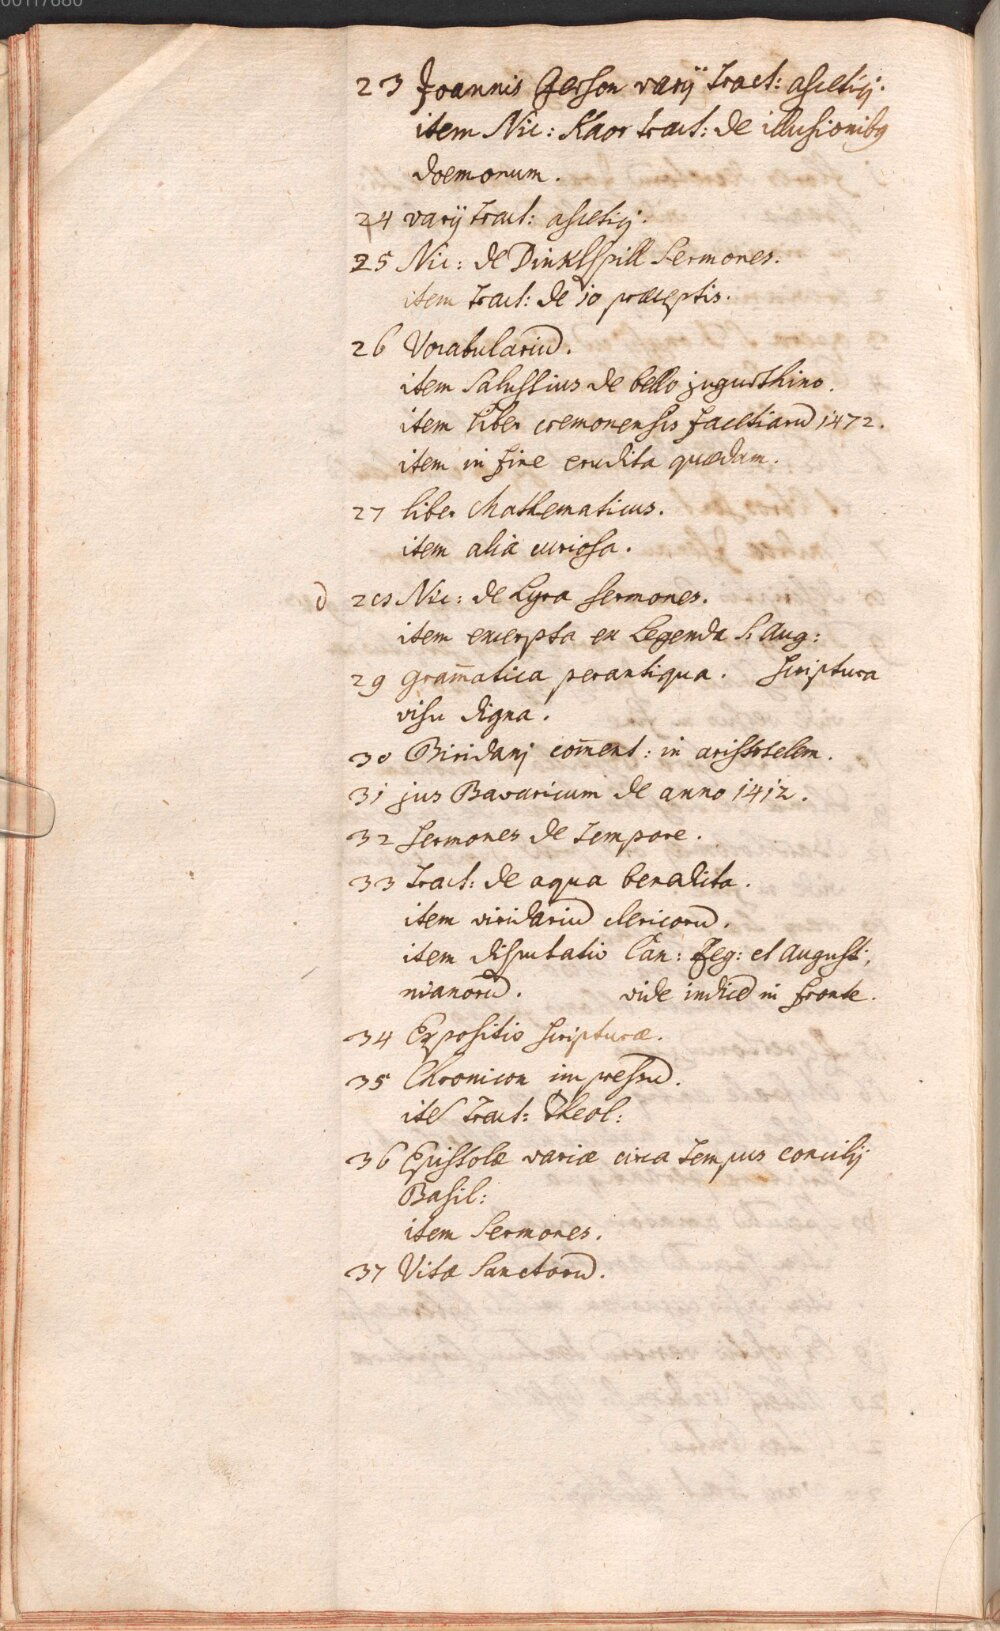 23 Joannis Gerson varÿ tract: ascetici.
item Nic: Kaor tract: de illusionibꝫ
doemonum.
24 varÿ tract: ascetici.
25 Nic: de Dinklspill Sermones.
item tract: de 10 præceptis.
26 Vocabulariū.
item Salustius de bello jugurthino.
item liber cremonensis facetiarū 1472.
item in fine erudita quædam.
27 liber Mathematicus.
item alia curiosa.
28 Nic: de Lyra sermones.
item excerpta ex Legenda S. Aug:
29 gram̄atica perantiqua. scriptura
visu digna.
30 Biridanj com̄ent: in aristotelem.
31 jus Bavaricum de anno 1412.
32 sermones de tempore.
33 tract: de aqua benedicta.
item viridariū clericorū.
item disputatio Can: Reg: et August:
nianorū. vide indicē in fronte.
34 Expositio scripturæ.
35 Chronicon impressū.
itē tract: theol:
36 Epistolæ variæ circa tempus concilij
Basil:
item Sermones.
37 Vitæ Sanctorū.